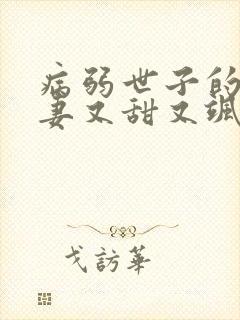 病弱世子的
妻又甜又飒
戈訪華